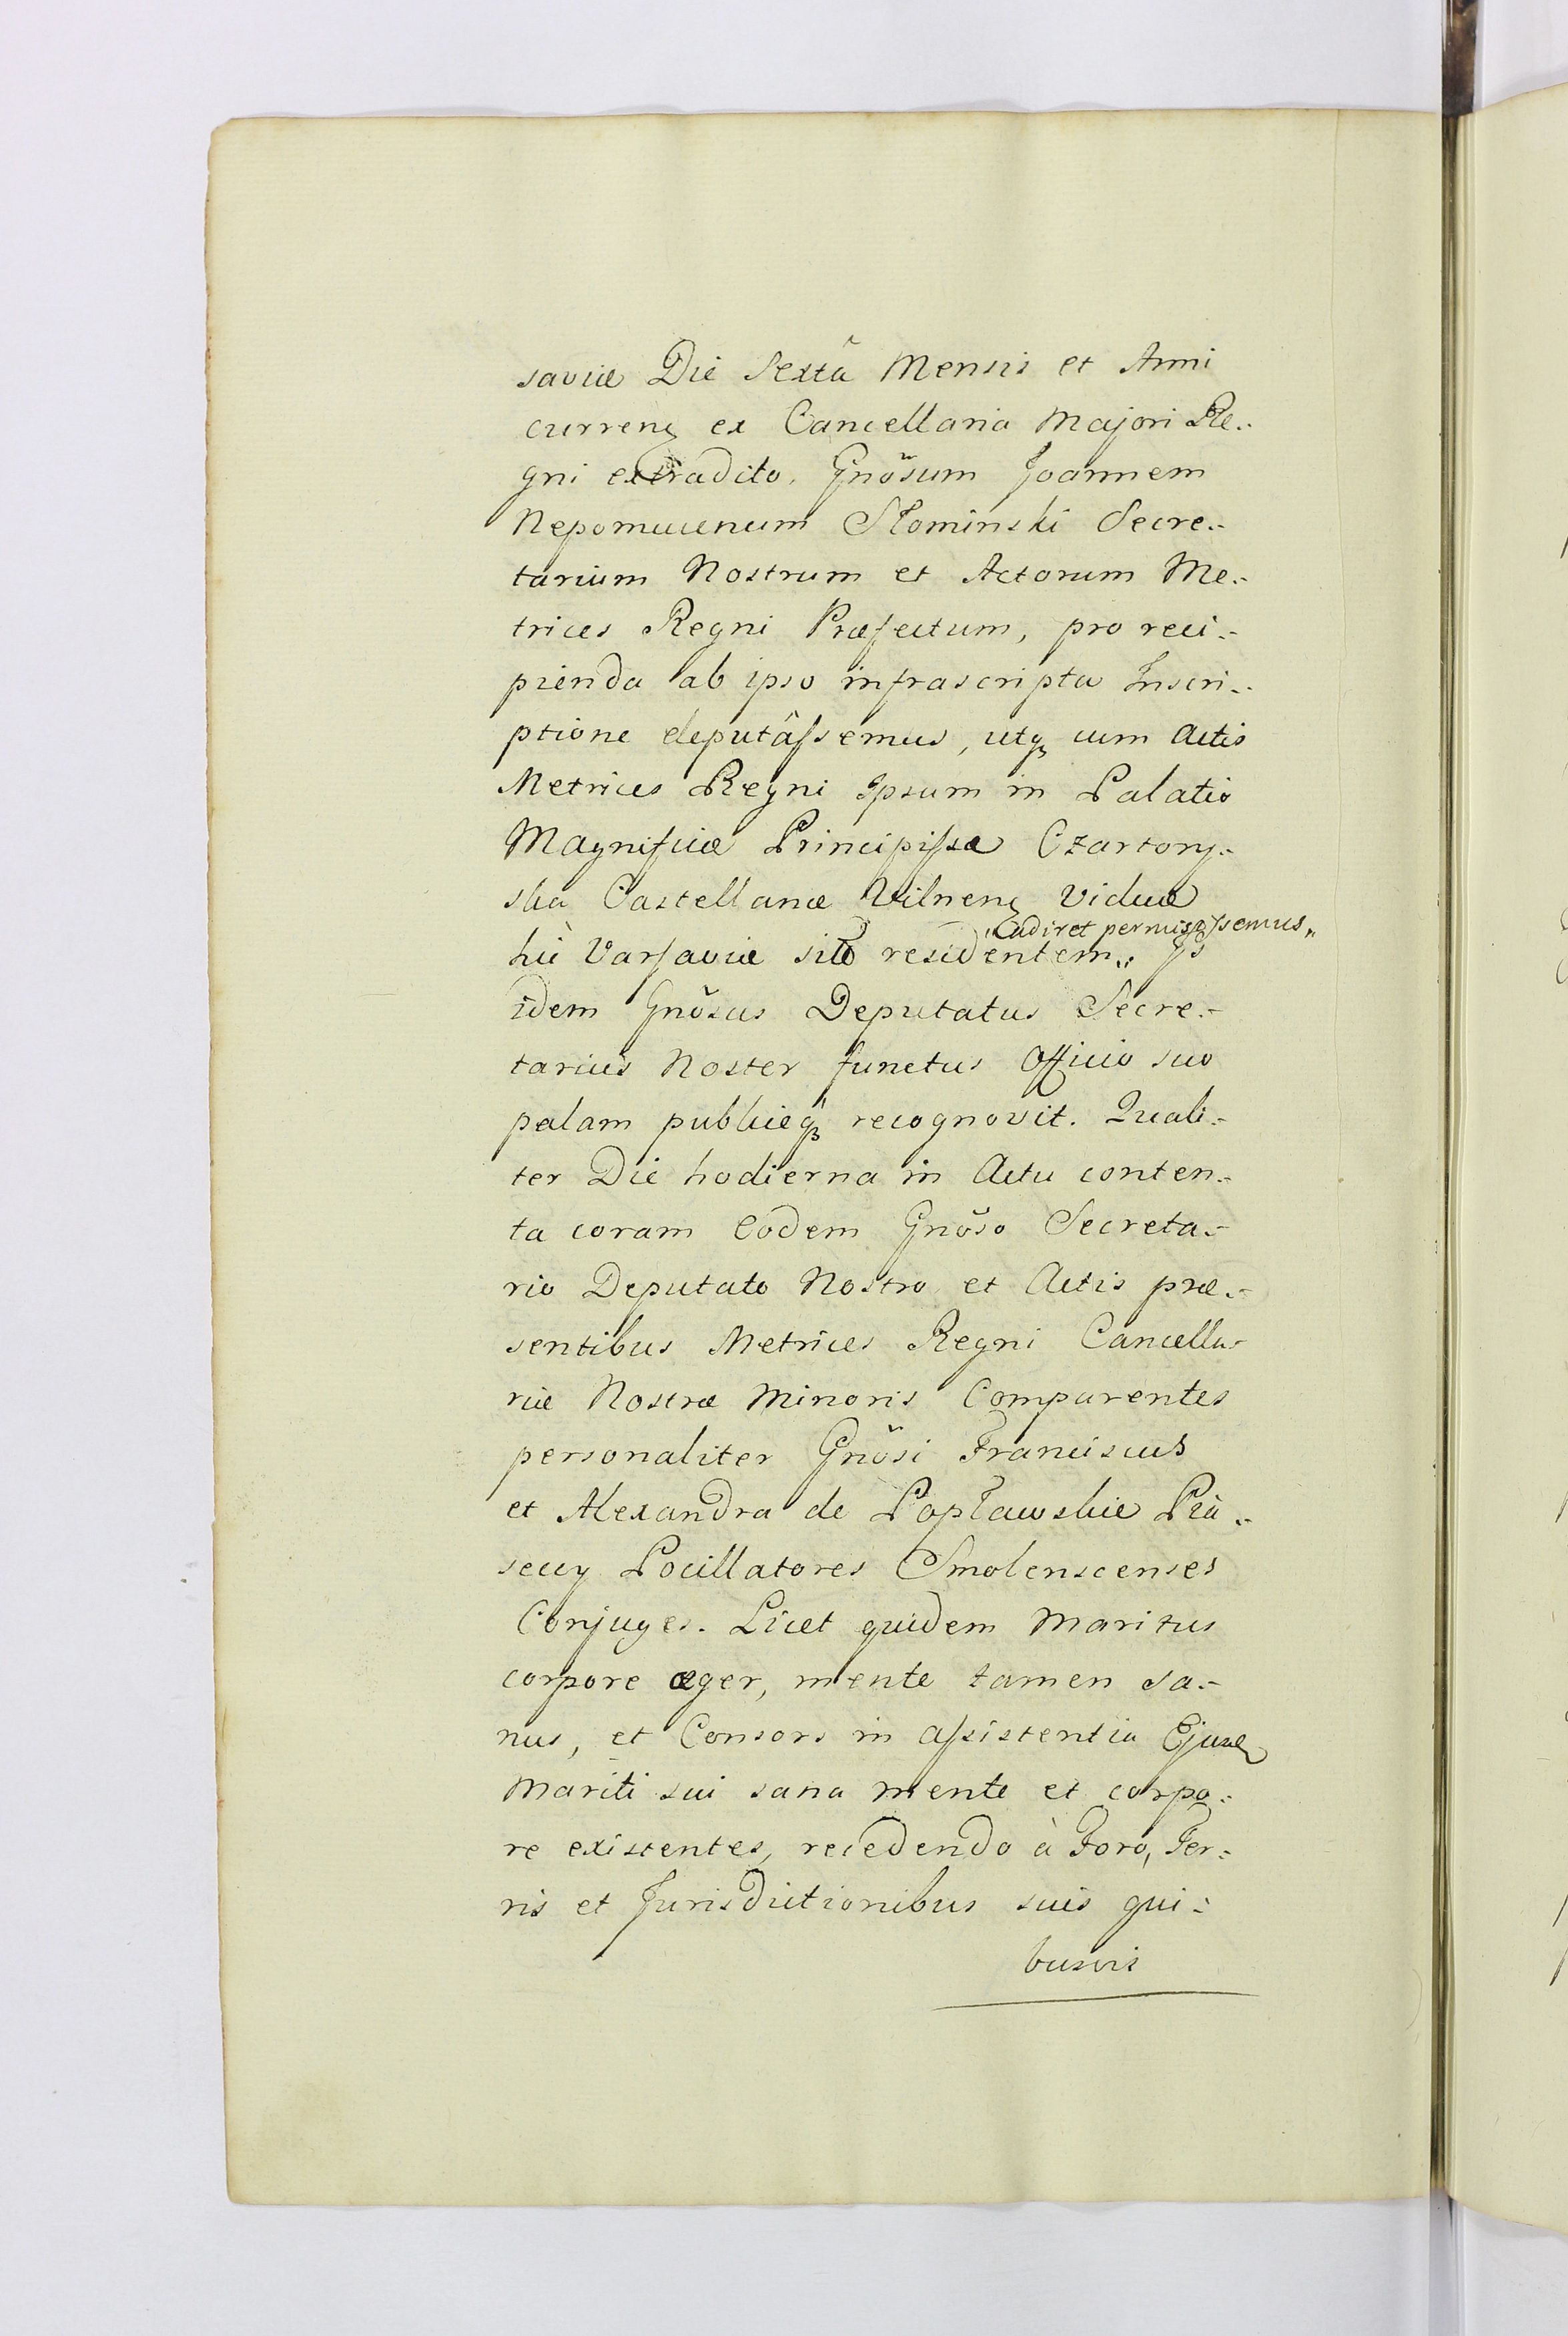 saviæ Die Sextâ Mensis et Anni
curren. ex Cancellaria Majori Re-
gni extradito, Gnõsum Joannem
Nepomucenum Słominski Secre-
tarium Nostrum et Actorum Me-
trices Regni Præfectum, pro reci-
pienda ab ipso infrascripta Inscri-
ptione deputâssemus, utq3 cum Actis
Metrices Regni Ipsum in Palatio
Magnificæ Principissæ Czartory-
ska Castellanæ Vilnen. Viduæ
„adiret permisissemus„
hic Varsaviæ sito residentem„ Is
idem Gnõsus Deputatus Secre-
tarius Noster functus Officio suo
palam publiceq3 recognovit. Quali-
ter Die hodierna in Actu conten-
ta coram Eodem Gnõso Secreta-
rio Deputato Nostro et Actis præ-
sentibus Metrices Regni Cancella-
riæ Nostræ Minoris Comparentes
personaliter Gnõsi Franciscus
et Alexandra de Popławskie Pia-
seccy Pocillatores Smolenscenses
Conjuges. Licet quidem Maritus
corpore æger, mente tamen sa-
nus, et Consors in assistentia Ejusd.
Mariti sui sana mente et corpo-
re existentes, recedendo à Foro, Ter-
ris et Jurisdictionibus suis qui-
busvis